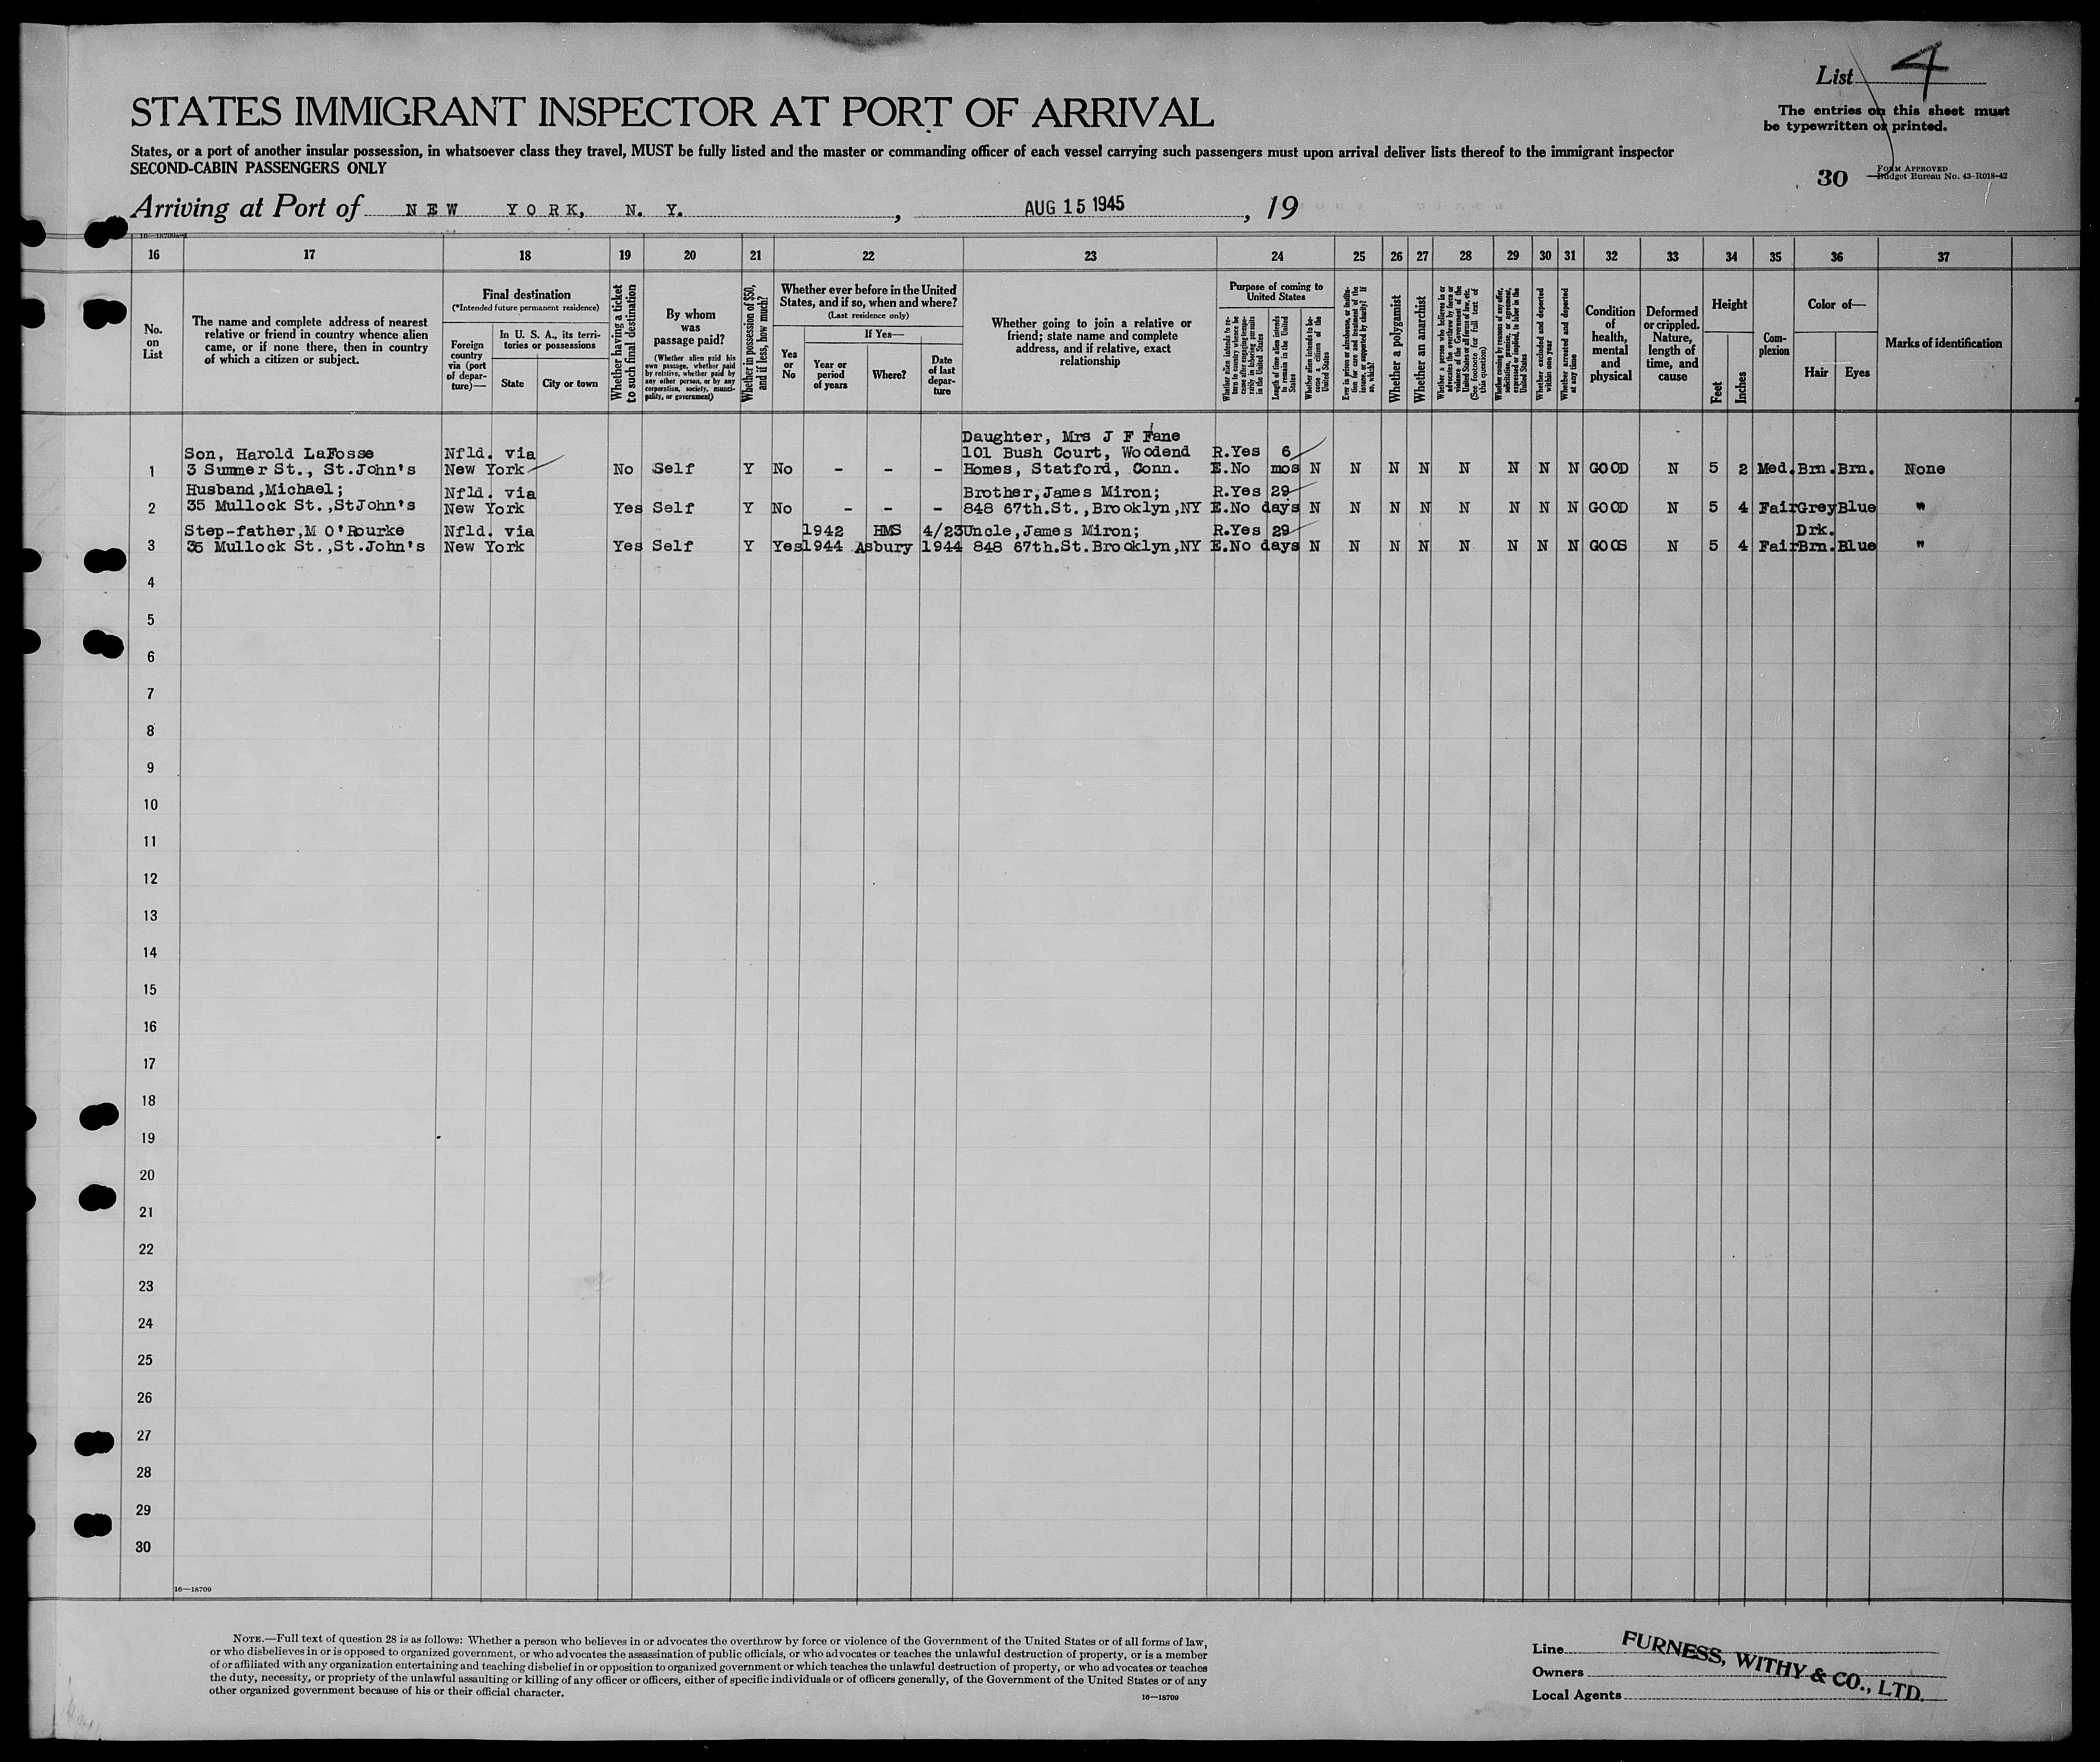 List 4
The entries on this sheet must
be typewritten or printed.
STATES IMMIGRANT INSPECTOR AT PORT OF ARRIVAL
States, or a port of another insular possession, in whatsoever class they travel, MUST be fully listed and the master or commanding officer of each vessel carrying such passengers must upon arrival deliver lists thereof to the immigrant inspector
SECOND-CABIN PASSENGERS ONLY
30
FORM APPROVED
Budget Bureau No. 43-R018-42
Arriving at Port of NEW YORK, N. Y. , AUG 15 1945 , 19
16 17 18 19 20 21 22 23 24 25 26 27 28 29 30 31 32 33 34 35 36 37
No.
on
List
The name and complete address of nearest
relative or friend in country whence alien
came, or if none there, then in country
of which a citizen or subject.
Final destination
(*Intended future permanent residence)
Foreign
country
via (port
of depar-
ture)—
In U. S. A., its terri-
tories or possessions
State
City or town
Whether having a ticket
to such final destination
By whom
was
passage paid?
(Whether alien paid his
own passage, whether paid
by relative, whether paid by
any other person, or by any
corporation, society, munici-
pality, or government)
Whether in possession of $50,
and if less, how much?
Whether ever before in the United
States, and if so, when and where?
(Last residence only)
Yes
or
No
If Yes—
Year or
period
of years
Where?
Date
of last
depar-
ture
Whether going to join a relative or
friend; state name and complete
address, and if relative, exact
relationship
Purpose of coming to
United States
Whether alien intends to re-
turn to country whence he
came after engaging tempo-
rarily in laboring pursuits
in the United States
Length of time alien intends
to remain in the United
States
Whether alien intends to be-
come a citizen of the
United States
Ever in prison or almshouse, or institu-
tion for care and treatment of the
insane, or supported by charity? If
so, which?
Whether a polygamist
Whether an anarchist
Whether a person who believes in or
advocates the overthrow by force or
violence of the Government of the
United States or all forms of law, etc.
(See footnote for full text of
this question)
Whether coming by reason of any offer,
solicitation, promise, or agreement,
expressed or implied, to labor in the
United States
Whether excluded and deported
within one year
Whether arrested and deported
at any time
Condition
of
health,
mental
and
physical
Deformed
or crippled.
Nature,
length of
time, and
cause
Height
Feet
Inches
Com-
plexion
Color of—
Hair
Eyes
Marks of identification
Daughter, Mrs J F Fane
Son, Harold LaFosse Nfld. via 101 Bush Court, Woodend R.Yes 6
1 3 Summer St., St.John's New York No Self Y No - - - Homes, Statford, Conn. E.No mos N N N N N N N N GOOD N 5 2 Med. Brn. Brn. None
Husband,Michael; Nfld. via Brother,James Miron; R.Yes 29
2 35 Mullock St.,StJohn's New York Yes Self Y No - - - 848 67th.St.,Brooklyn,NY E.No days N N N N N N N N GOOD N 5 4 Fair Grey Blue "
Step-father,M O'Rourke Nfld. via 1942 HMS 4/23 Uncle,James Miron; R.Yes 29 Drk.
3 35 Mullock St.,St.John's New York Yes Self Y Yes 1944 Asbury 1944 848 67th.St.Brooklyn,NY E.No days N N N N N N N N GOOS N 5 4 Fair Brn. Blue "
4
5
6
7
8
9
10
11
12
13
14
15
16
17
18
19
20
21
22
23
24
25
26
27
28
29
30
16—18709
NOTE.—Full text of question 28 is as follows: Whether a person who believes in or advocates the overthrow by force or violence of the Government of the United States or of all forms of law,
or who disbelieves in or is opposed to organized government, or who advocates the assassination of public officials, or who advocates or teaches the unlawful destruction of property, or is a member
of or affiliated with any organization entertaining and teaching disbelief in or opposition to organized government or which teaches the unlawful destruction of property, or who advocates or teaches
the duty, necessity, or propriety of the unlawful assaulting or killing of any officer or officers, either of specific individuals or of officers generally, of the Government of the United States or of any
other organized government because of his or their official character.
16—18709
Line
Owners
Local Agents
FURNESS, WITHY & CO., LTD.